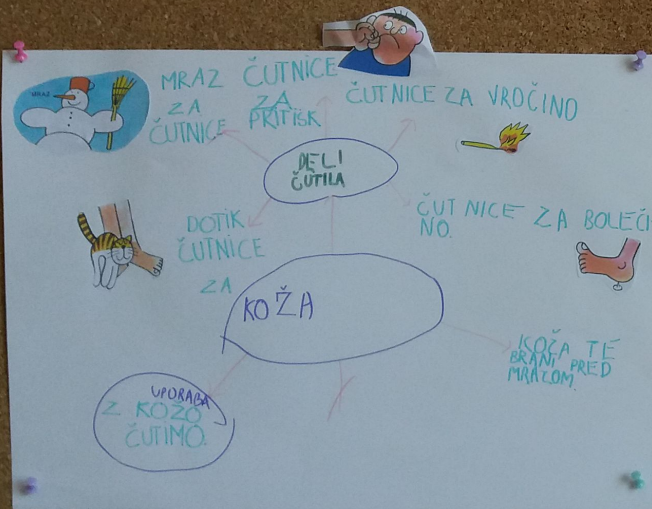 MRAZ
ZA
ČUTNICE
ČUTNICE
ZA
PRITISK
ČUTNICE ZA VROČINO
DELI
ČUTILA
DOTIK
ČUTNICE
ZA
ČUTNICE ZA BOLEČI
NO.
KOŽA
KOČA TE
BRANI PRED
MRAZOM.
UPORABA
Z KOŽO
ČUTIMO.